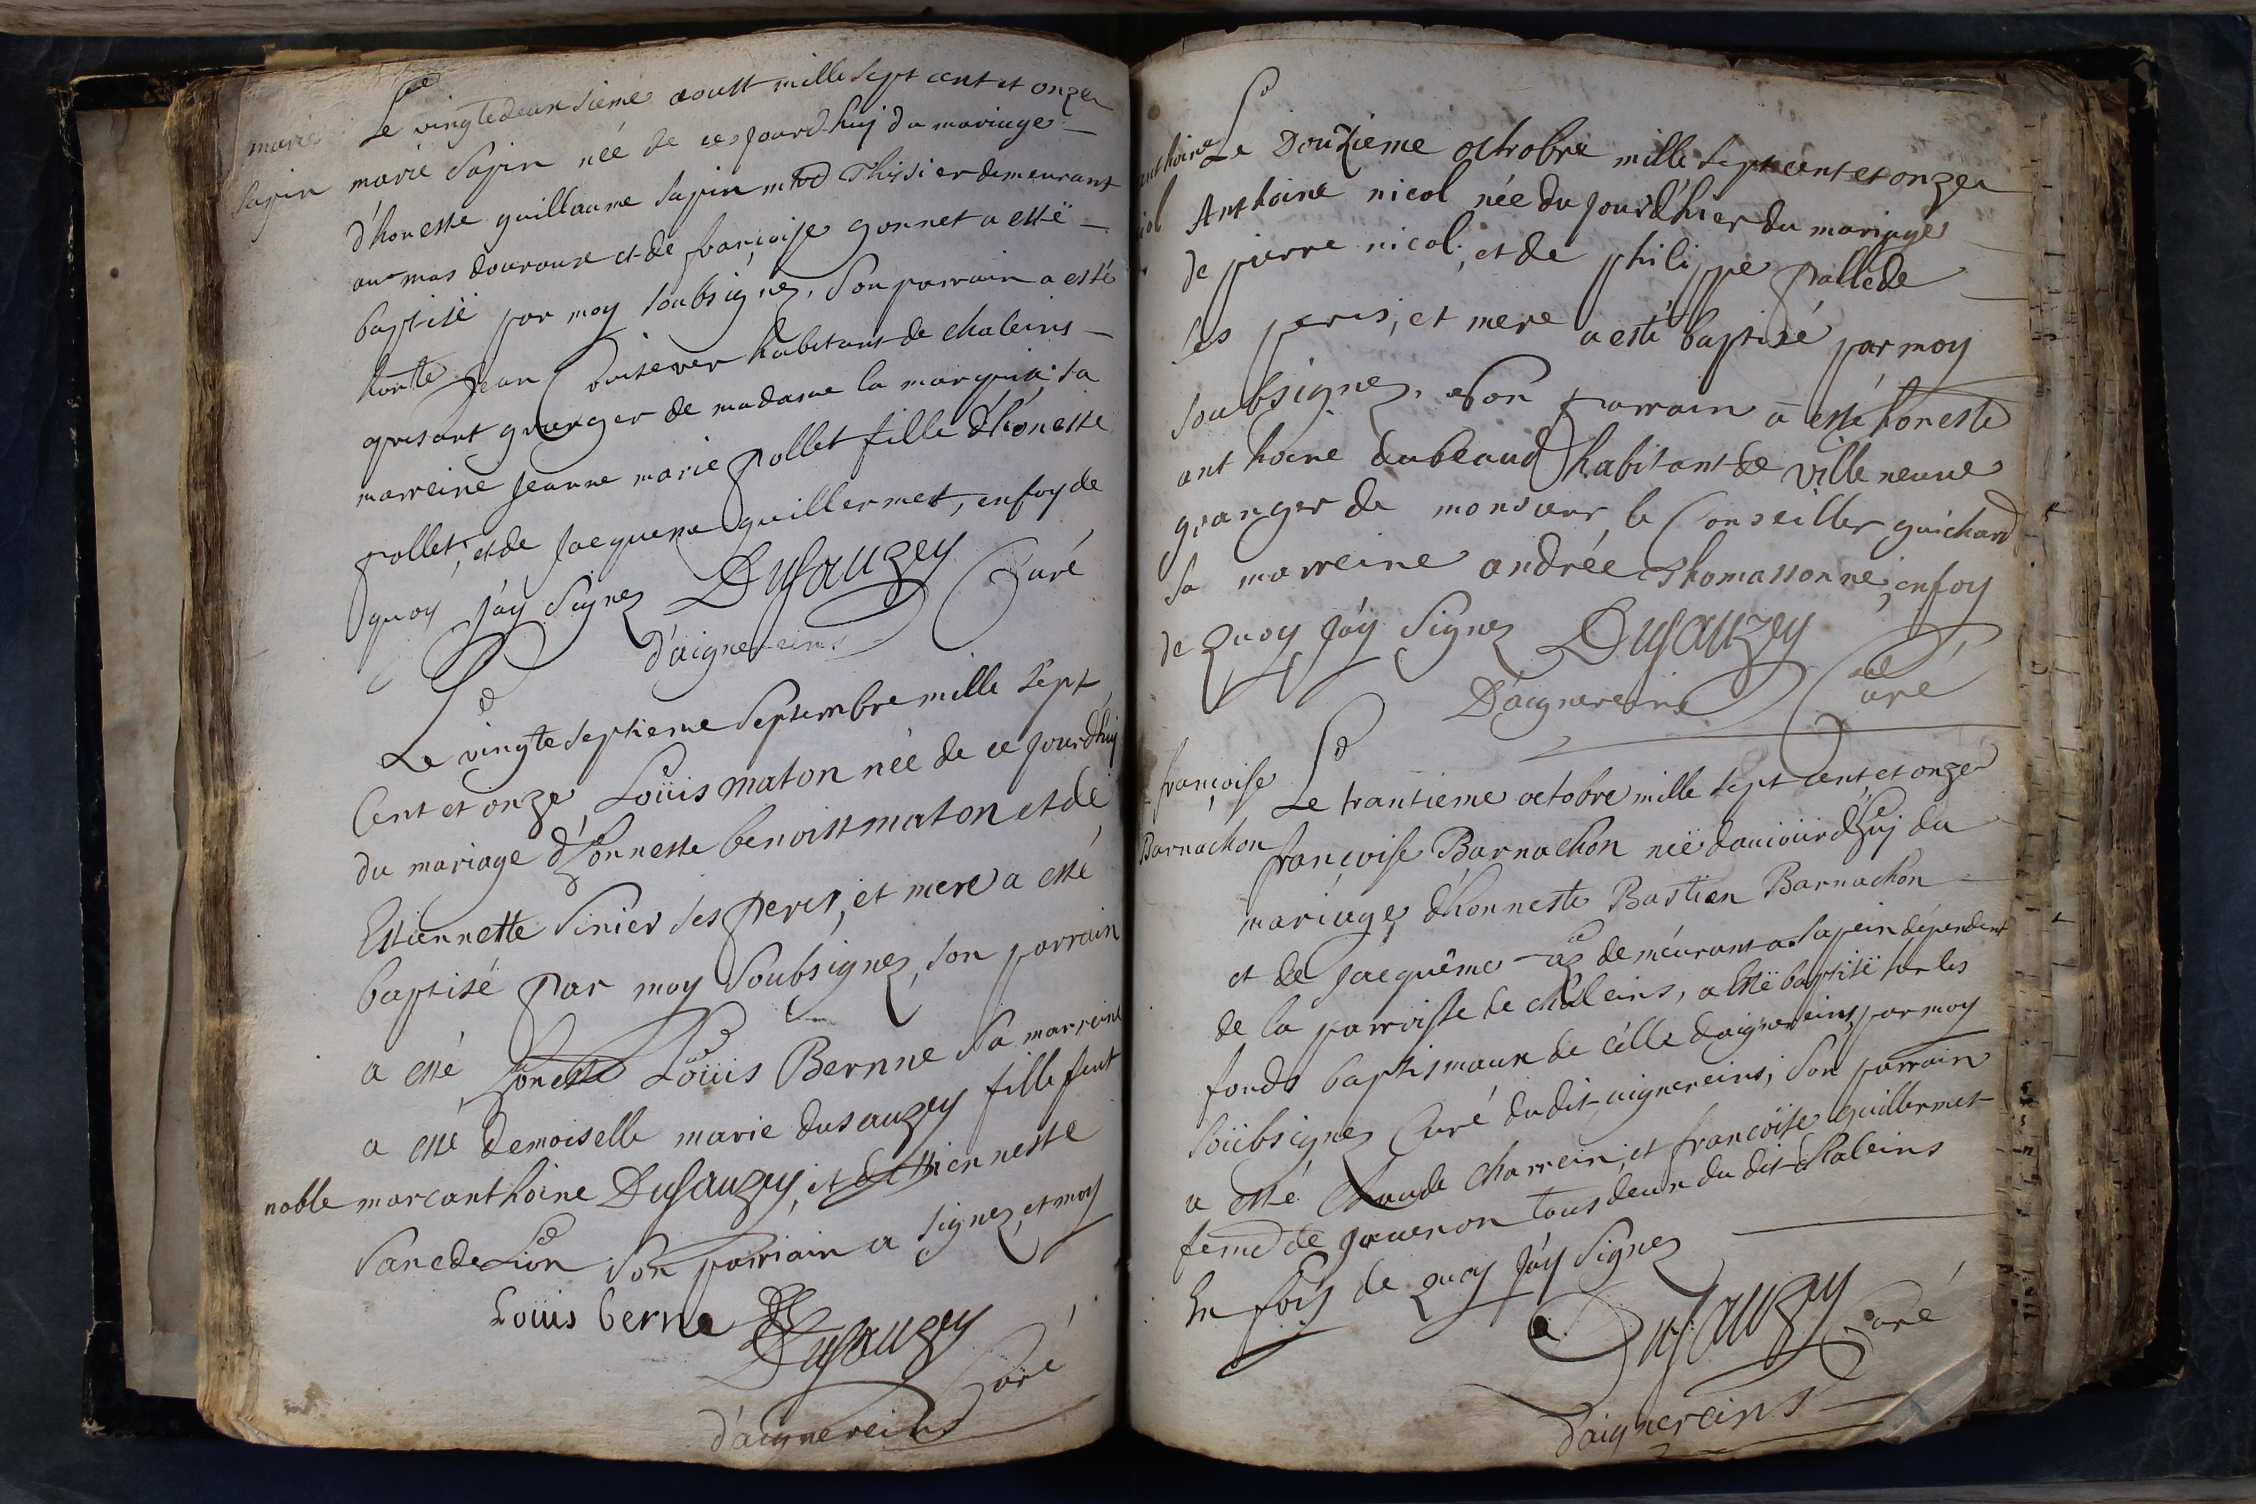 marie
Sapin
Le vingtedeuxsieme aoust mille sept cent et onze
marie Sapin née de ce jourd'huy du mariage
d'honeste guillaume sapin mtre Thissier demeurant
au mas douroux et de françoise gonnet a esté
baptisé par moy soubsignez, son parrain a esté
honte Jean habitant de chaleins
grangér de madame la marquise sa
marreine Jeanne marie pollet fille d'honeste
pollet, et de Jacqueme guillermet, en foy de
quoy j'ay signez Dusauzey Curé
d'aignereins
Le vingte septieme septembre mille sept
Cent et onze Loüis maton née de ce jourd'huy
du mariage d'honneste benoist maton et de
Estiennette Sinier ses peres, et mere a esté
baptisé par moy soubsignez, son parrain
a esté honeste Loüis Bernne sa marreine
a esté Demoiselle marie dusauzey fille feut
noble marcanthoine Dusauzey, et d'Estienneste
Sanedelion son parriain a signez, et moy
Loüis berne Dusauzey
Curé
d'aignereins
anthoine
nicol
Le Douzieme octrobre mille sept cent et onze
Anthoine nicol née du jourd'hier du mariage
de pierre nicol, et de philippe pallede
ses peris, et mere a esté baptizé par moy
soubsignez, son parrain a esté honeste
anthoine dubeaud habitant de ville neuve
granger de monsieur le Conseiller guichard
sa marreine andrée Thomassonne, en foy
de quoy j'ay signez Dusauzey
D'aignereins Curé
françoise
Barnachon
Le trantieme octobre mille sept cent, et onze
françoise Barnachon neë d'aujourd'huj du
mariage d'honneste Bastien Barnachon
et de Jacquême demeurant a Sapein dépendent
de la parroisse de chaleins, a esté baptisë sur les
fonds baptismaux de célle d'aignereins, par moy
soübsignez Curé dudit aignereins, son parrain
a esté Claude Charrein, et francoise guillermet
feme de Jauenon tous deux du dit chaleins
En foy de quoy j'ay signez
Dusauzey Curé
D'aignereins